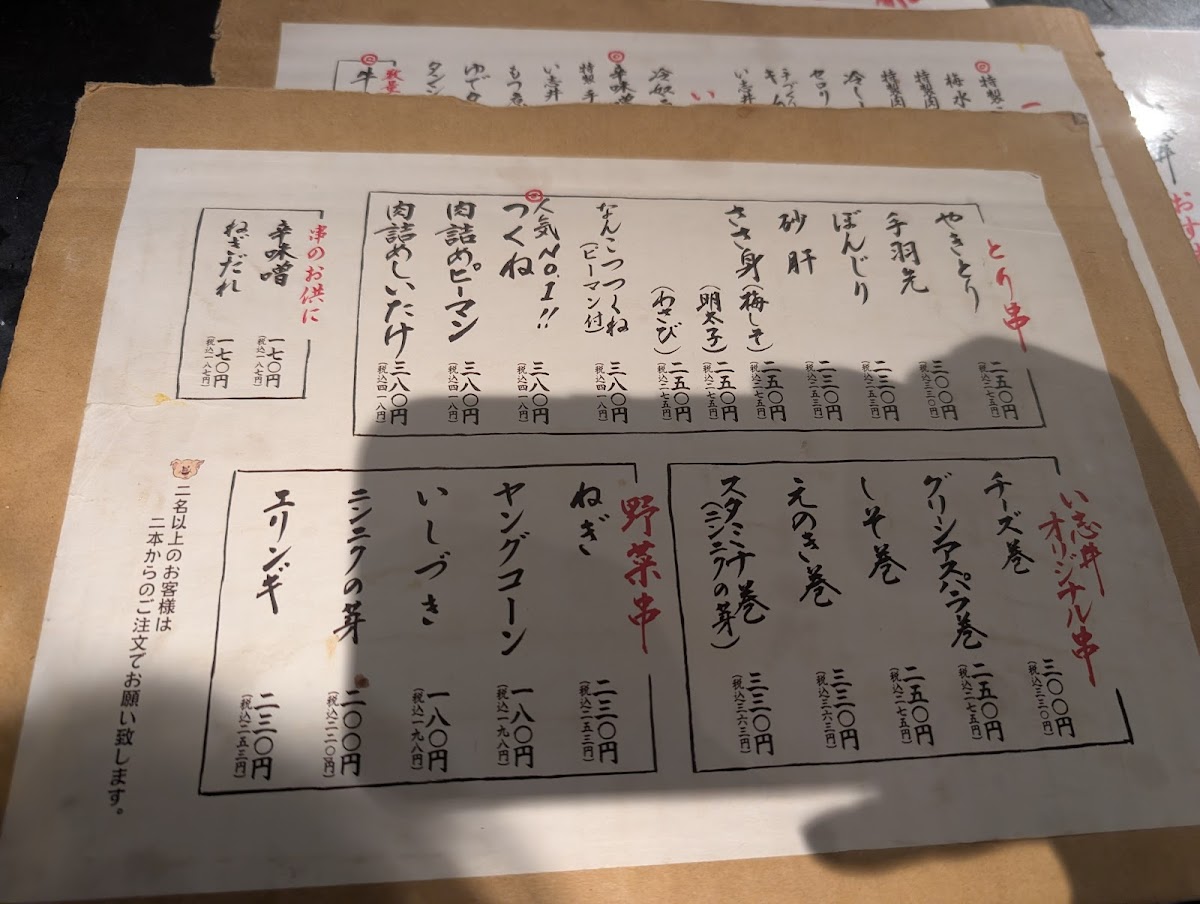 とり串
やきとり 二五〇円 (税込二七五円)
手羽先 三〇〇円 (税込三三〇円)
ぼんじり 二三〇円 (税込二五三円)
砂肝 二三〇円 (税込二五三円)
ささ身(梅しそ) 二五〇円 (税込二七五円)
(明太子) 二五〇円 (税込二七五円)
(わさび) 二五〇円 (税込二七五円)
なんこつつくね(ピーマン付) 三八〇円 (税込四一八円)
人気No.1!!
つくね 三八〇円 (税込四一八円)
肉詰めピーマン 三八〇円 (税込四一八円)
肉詰めしいたけ 三八〇円 (税込四一八円)
串のお供に
辛味噌 一七〇円 (税込一八七円)
ねぎだれ 一七〇円 (税込一八七円)
い志井
オリジナル串
チーズ巻 三〇〇円 (税込三三〇円)
グリーンアスパラ巻 二五〇円 (税込二七五円)
しそ巻 二五〇円 (税込二七五円)
えのき巻 三三〇円 (税込三六三円)
スタミナ巻(ニンニクの芽) 三三〇円 (税込三六三円)
野菜串
ねぎ 二三〇円 (税込二五三円)
ヤングコーン 一八〇円 (税込一九八円)
いしづき 一八〇円 (税込一九八円)
ニンニクの芽 二〇〇円 (税込二二〇円)
エリンギ 二三〇円 (税込二五三円)
二名以上のお客様は
二本からのご注文でお願い致します。
特製
梅水
特製肉
特製肉
冷し
セロリ
い志井
冷奴
辛味噌
特製手
い志井
もつ煮
ゆで
タン
数量
牛
志井
おす